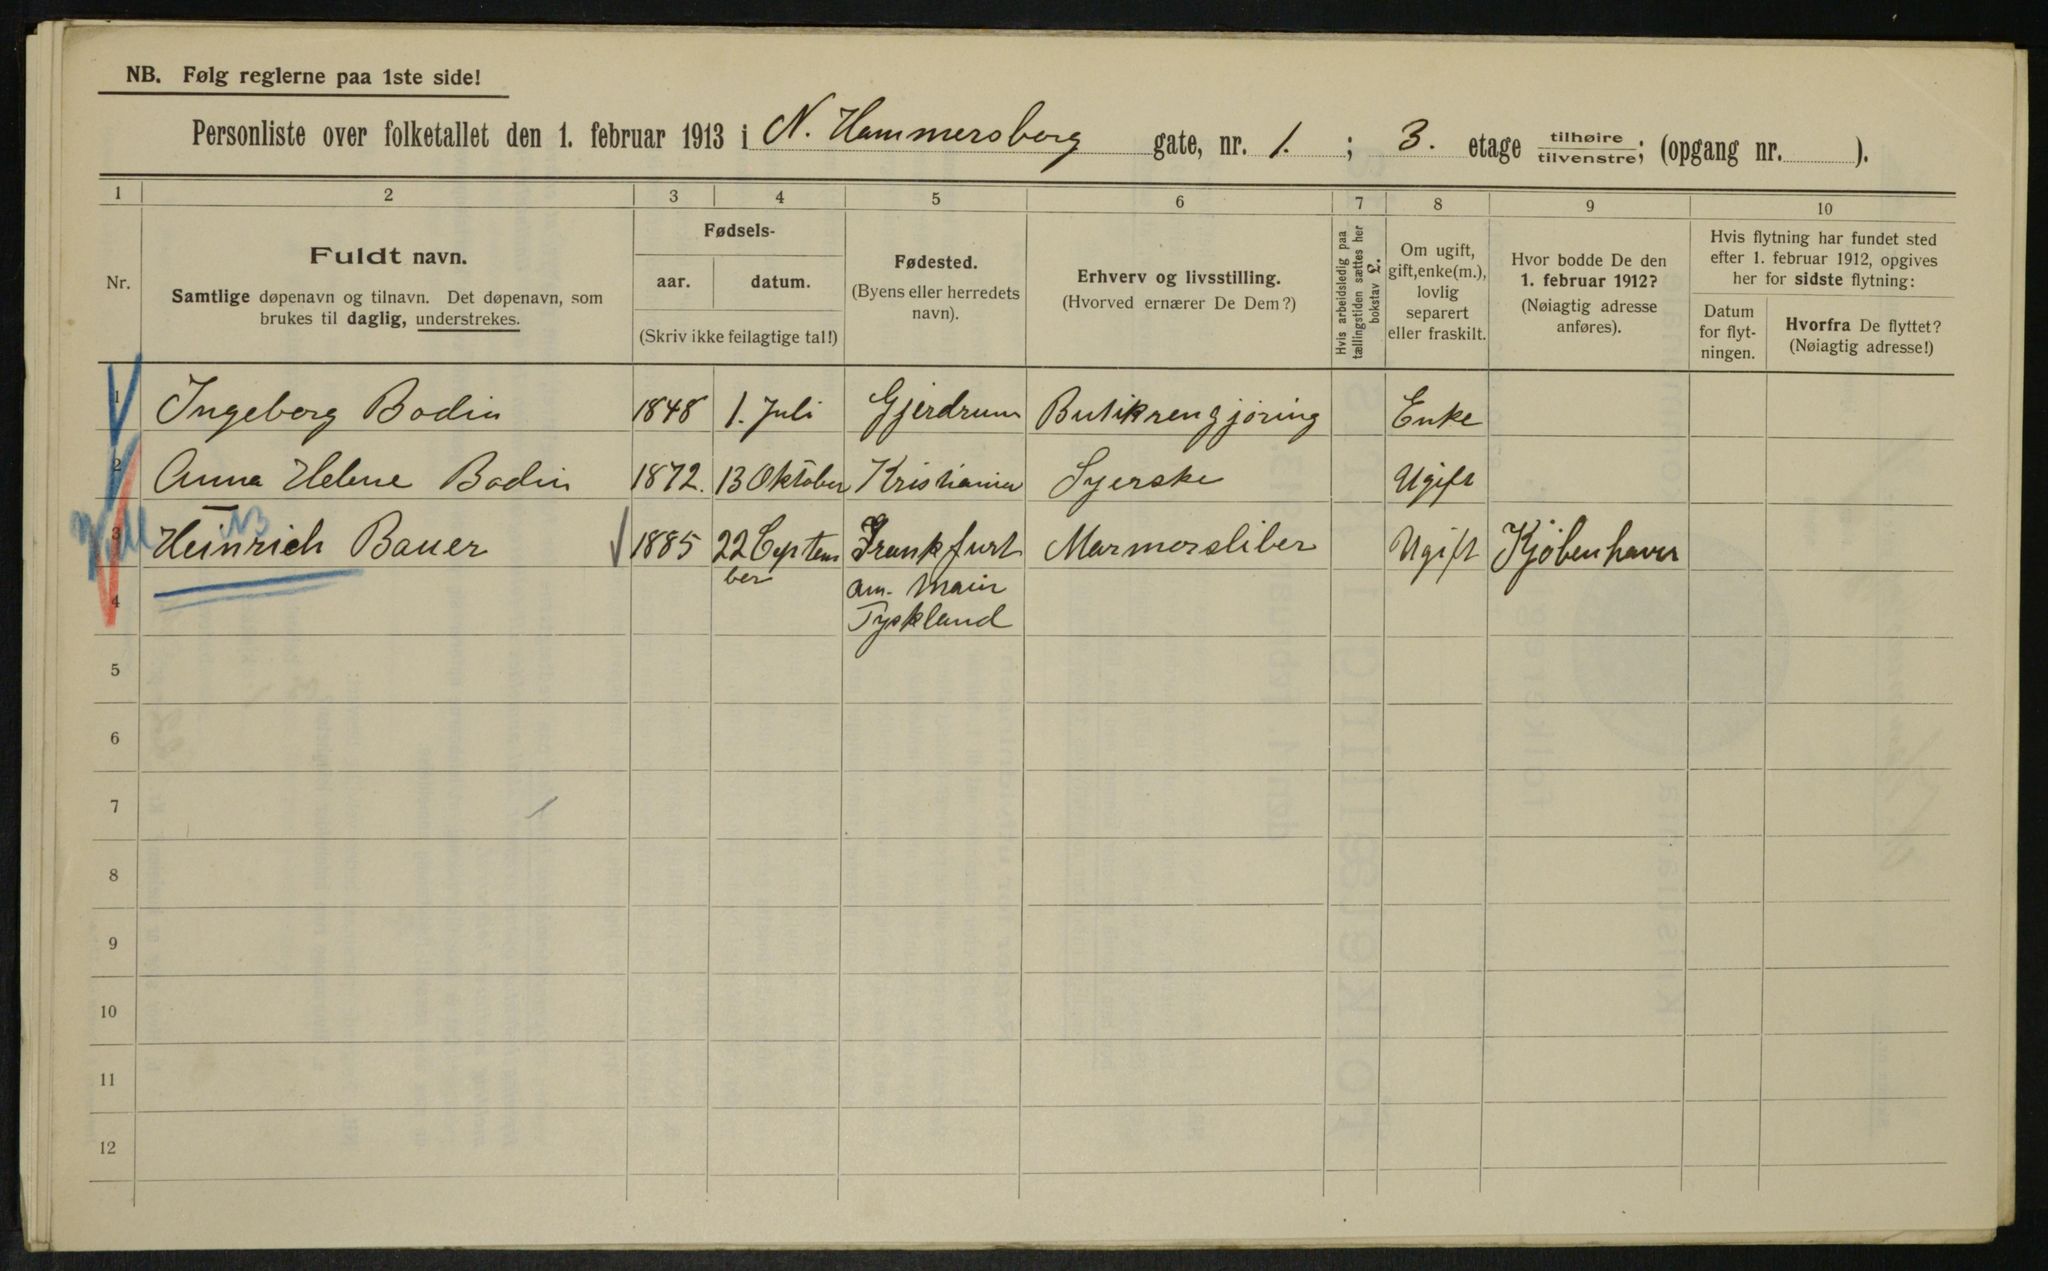 NB. Følg reglerne paa 1ste side!
Personliste over folketallet den 1. februar 1913 i N. Hammersborg gate, nr. 1. ; 3. etage tilhøire/tilvenstre; (opgang nr. ).
1 2 3 4 5 6 7 8 9 10
Nr.
Fuldt navn.
Samtlige døpenavn og tilnavn. Det døpenavn, som
brukes til daglig, understrekes.
Fødsels-
aar. datum.
(Skriv ikke feilagtige tal!)
Fødested.
(Byens eller herredets
navn).
Erhverv og livsstilling.
(Hvorved ernærer De Dem?)
Hvis arbeidsledig paa
tællingstiden sættes her
bokstav L.
Om ugift,
gift, enke(m.),
lovlig
separert
eller fraskilt.
Hvor bodde De den
1. februar 1912?
(Nøiagtig adresse
anføres).
Hvis flytning har fundet sted
efter 1. februar 1912, opgives
her for sidste flytning:
Datum
for flyt-
ningen.
Hvorfra De flyttet?
(Nøiagtig adresse!)
1 Ingeborg Bodin 1848 1. Juli Gjerdrum Butikrengjöring Enke
2 Anna Helene Bodin 1872. 13 Oktober Kristiania Syerske Ugift
NB
3 Heinrich Bauer 1885 22 Septem Frankfurt Marmorsliber Ugift Kjöbenhavn
ber am. Main
4 Tyskland
5
6
7
8
9
10
11
12